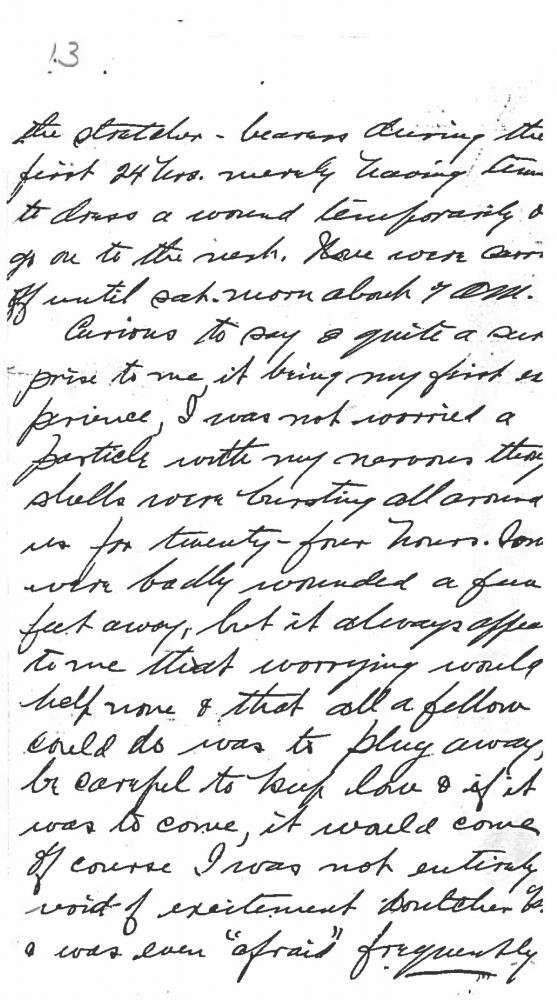 13
the stretcher - bearers during the
first 24 hrs. merely having tim
to dress a wound temporarily &
go on to the next. None were carr
off until sat. morn about 7 AM.
Curious to say & quite a sur
prise to me, it being my first ex
perience, I was not worried a
particle with my nervous thoug
shells were bursting all around
us for twenty-four hours. Som
were badly wounded a few
feet away, but it always appea
to me that worrying would
help none & that all a fellow
could do was to plug away,
be careful to keep low & if it
was to come, it would come
Of course I was not entirely
void of excitement
& was even "afraid" frequently